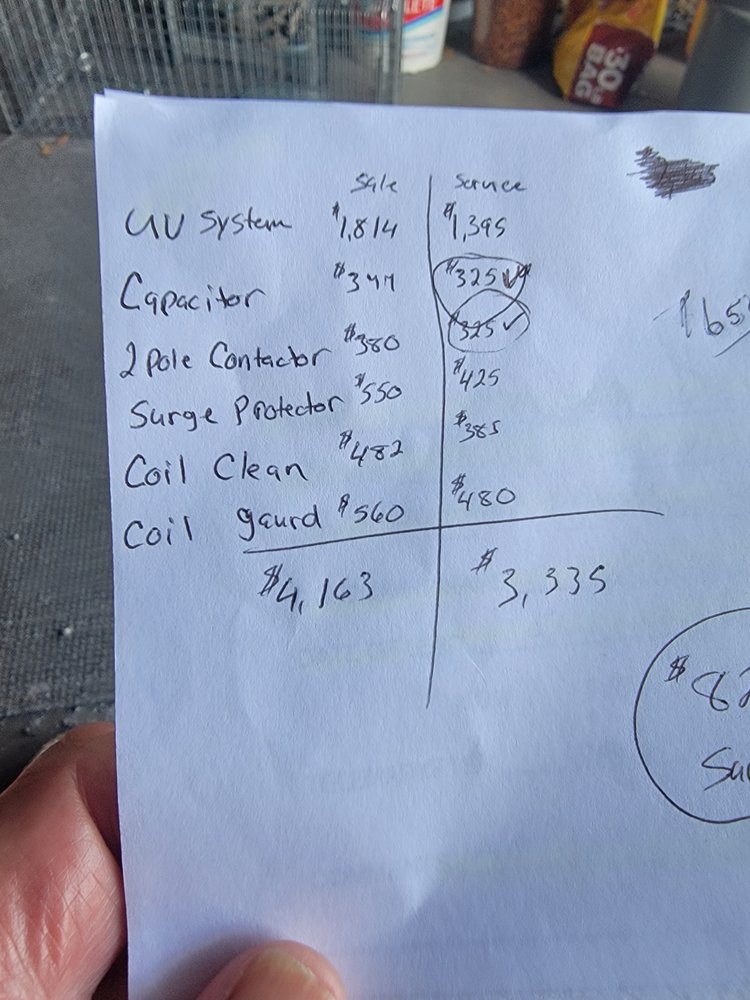 Sale Service
UV System $1,814 $1,395
Capacitor $377 $325 ✓
2 Pole Contactor $380 $325 ✓
Surge Protector $550 $425
Coil Clean $482 $385
Coil gaurd $560 $480
$4,163 $3,335
$82
BAG